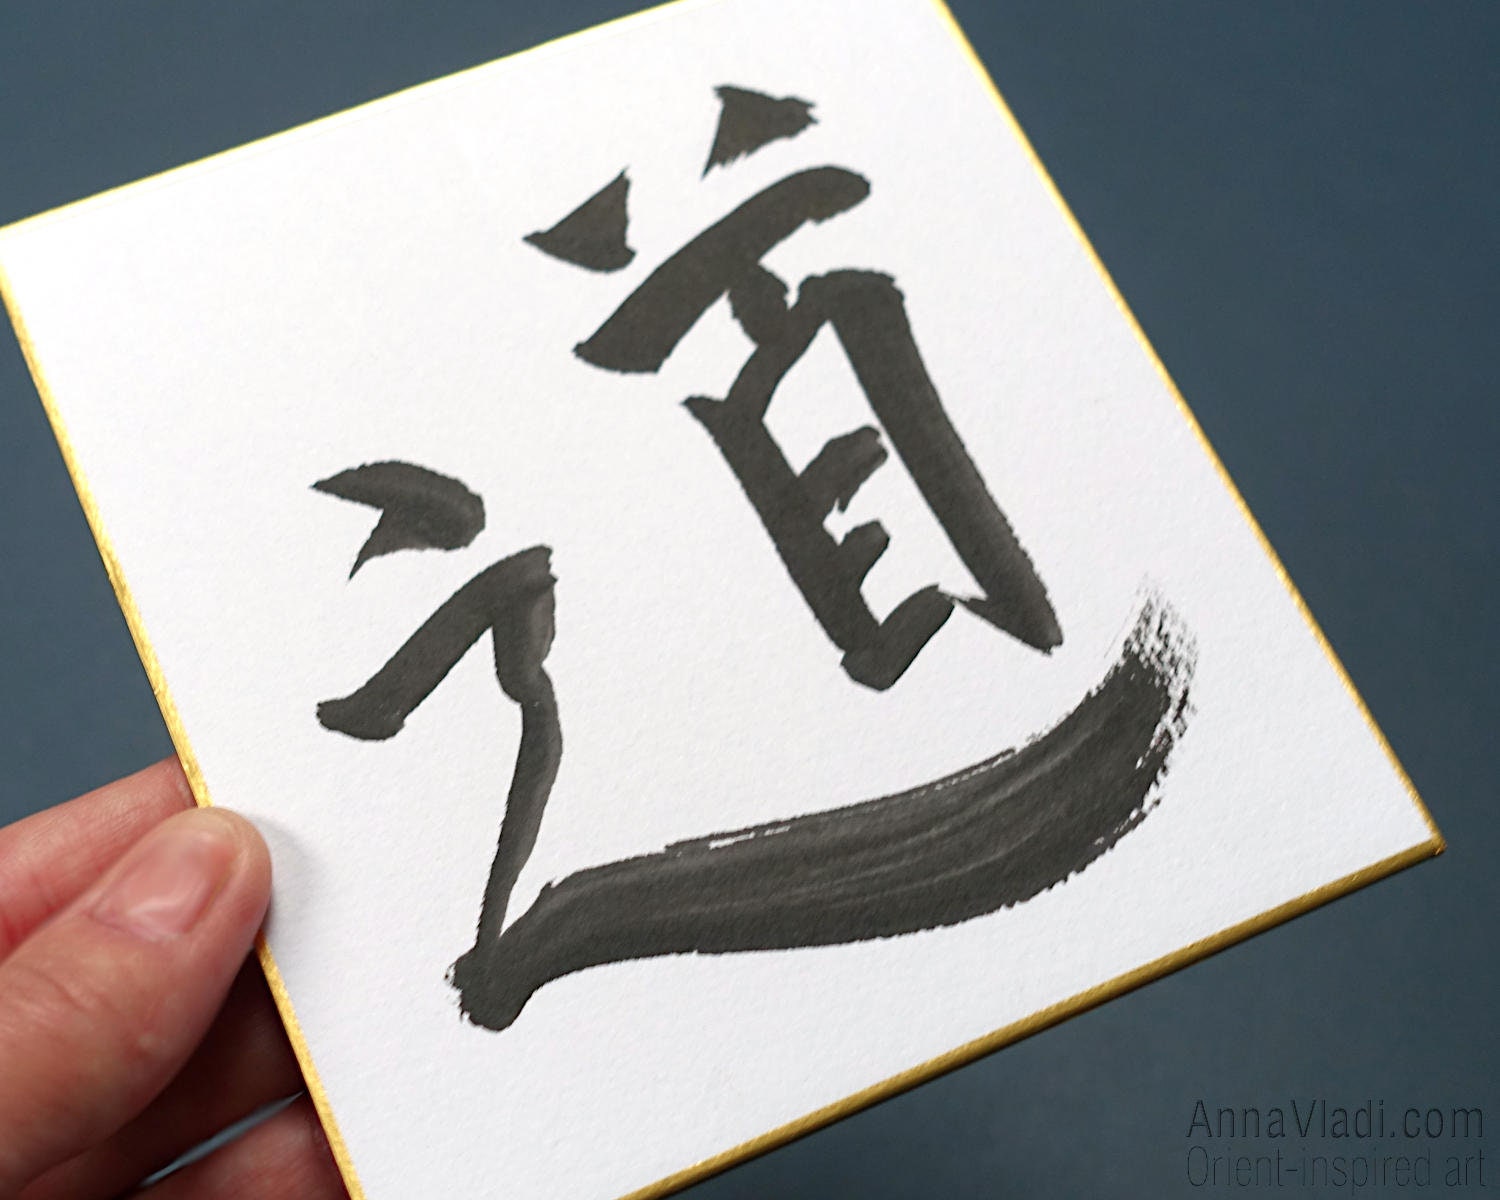 道
AnnaVladi.com
Orient-inspired art